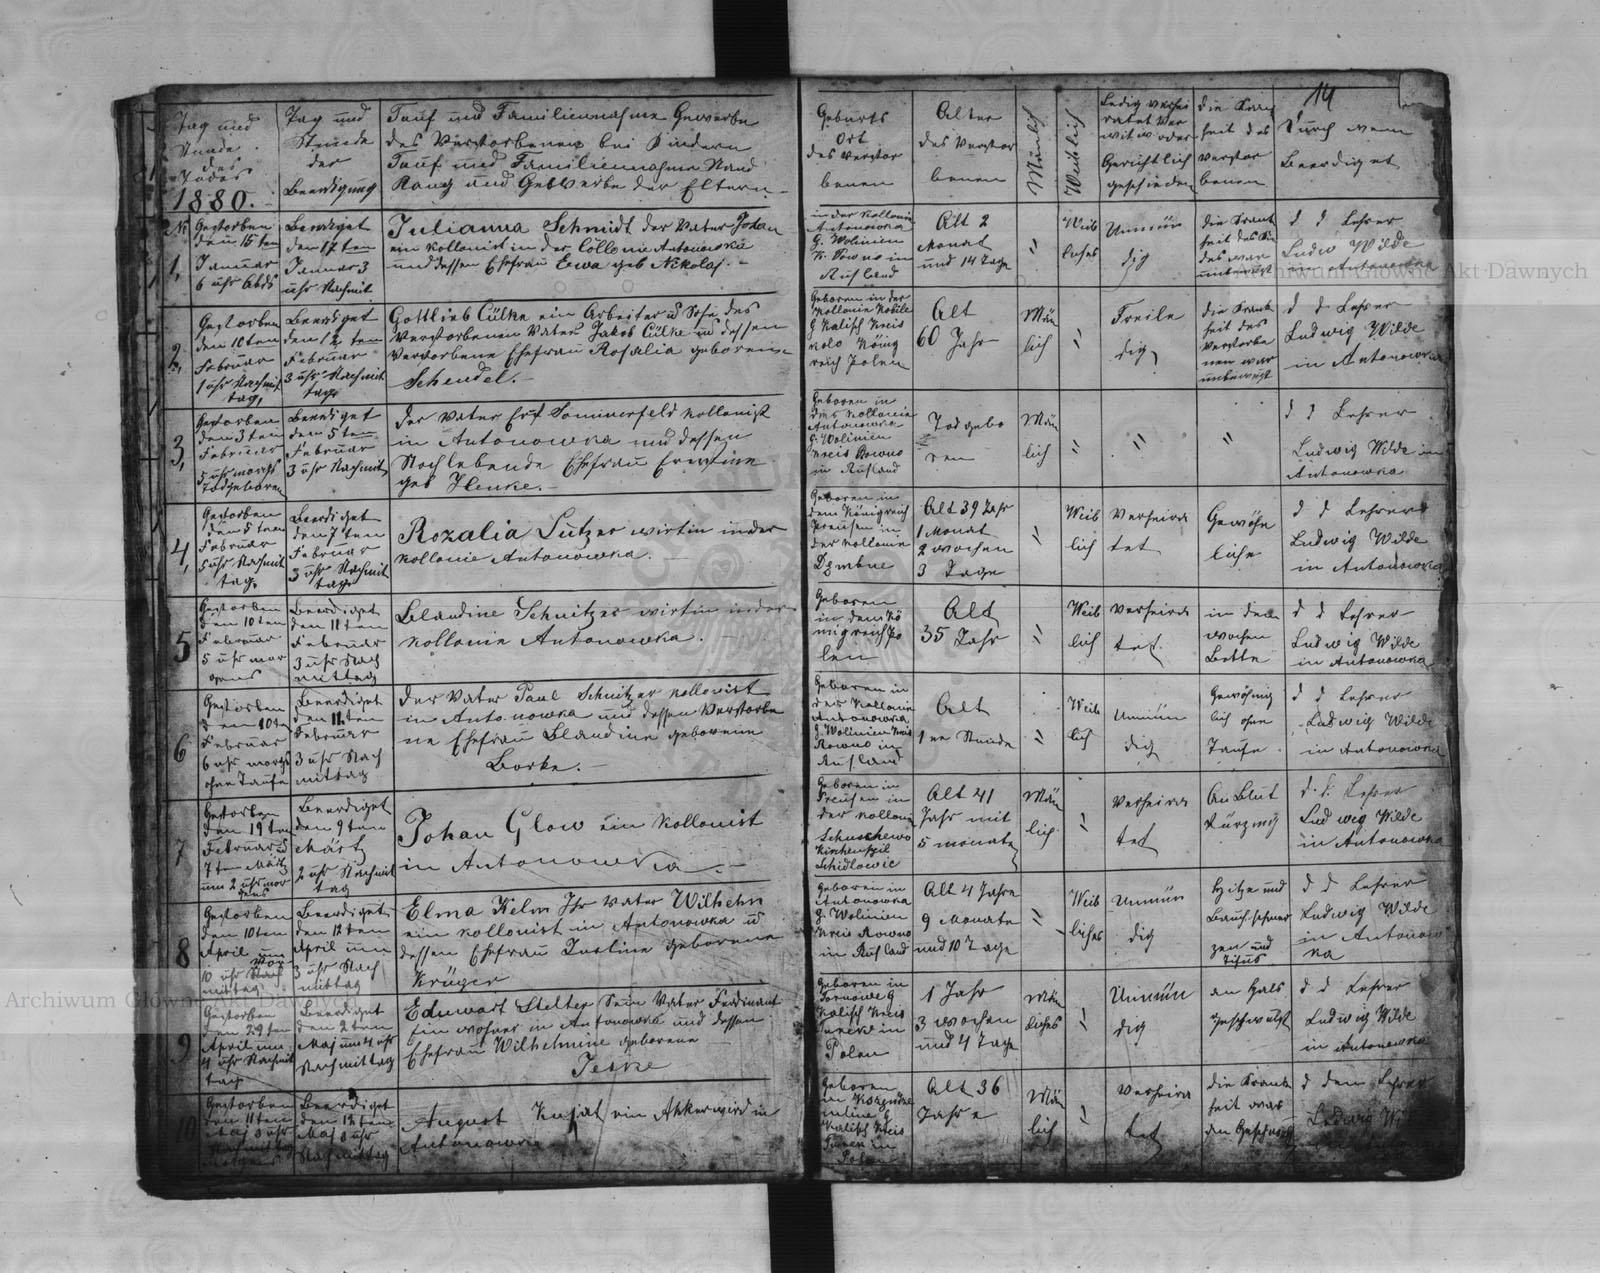 14
Tag und
Stunde
des
Todes
1880.
Tag und
Stunde
der
Beerdigung
Tauf und Familiennahme Gewerbe
des Verstorbenen bei Kindern
Tauf und Familiennahme Stand
Rang und Gebwerbe der Eltern
Geburts
Ort
des Verstor
benen
Alter
des Verstor
benen
Mänlich
Weiblich
Ledig verhei
ratet Ver
witw oder
Gerichtlich
geschieden
die Kran
heit des
verstor
benen
Durch wem
Beerdiget
1,
Gestorben
den 15 ten
Januar
6 uhr Abds
Beerdiget
den 17 ten
Januar 3
uhr Nachmit
Julianna Schmidt der Vater Johan
ein kollonist in der Collonie Antonowka
und dessen Ehefrau Ewa geb Nikolaj. –
in der Kollonie
Antonowka
G. Wolinien
K. Rowno in
Rusland
Alt 2
Monat
und 14 Tage
"
Weib
liches
Unmün
dig
die Krank
heit des Kin
des war
unbewust
d d Lehrer
Ludw Wilde
in Antonowka
2,
Gestorben
den 10 ten
Februar
1 uhr Nachmit
tag,
Beerdiget
den 12 ten
Februar
3 uhr Nachmit
tag
Gottlieb Cülke ein Arbeiter u Sohn des
Verstorbenen Vater Jakob Cülke u dessen
Verstorbene Ehefrau Rosalia geboren
Schendel. –
Geboren in der
Kollonie Nobile
G Kalisch Kreis
Kolo König
reich Polen
Alt
60 Jahr
Män
lich
"
Freile
dig
die Krank
heit des
Verstorbe
nen war
unbewust
d d Lehrer
Ludwig Wilde
in Antonowka
3,
Gestorben
den 3 ten
Februar
5 uhr morgs
Todgeboren
Beerdiget
den 5 ten
Februar
3 uhr Nachmit
der Vater Sommerfeld kollonist
in Antonowka und dessen
Nochlebende Ehefrau
geb Henke. –
Geboren in
der Kollonie
Antonowka
G. Wolinien
Kreis Rowno
in Rusland
Todgebo
ren
Män
lich
"
"
"
d d Lehrer
Ludwig Wilde in
Antonowka
4,
Gestorben
den 5 ten
Februar
5 uhr Nachmit
tag.
Beerdiget
den 7 ten
Februar
3 uhr Nachmit
tag
Rozalia Lutzer wirtin in der
kollonie Antonowka.
Geboren in
dem Königreich
Preusen in
der kollonie
Dembne
Alt 39 Jahr
1 Monat
2 wochen
3 Tage
"
Weib
lich
Verheira
tet
Gewöhn
liche
d d Lehrer
Ludwig Wilde
in Antonowka
5
Gestorben
den 10 ten
Februar
5 uhr mor
gens
Beerdiget
den 11 ten
Februar
3 uhr Nach
mittag
Blandine Schnitzer wirtin in der
kollonie Antonowka. –
Geboren
in dem Kö
nigreich Po
len
Alt
35 Jahr
"
Weib
lich
Verheira
tet
in dem
wochen
Bette
d d Lehrer
Ludwig Wilde
in Antonowka
6
Gestorben
den 10 ten
Februar
6 uhr morgs
ohne Taufe
Beerdiget
den 11. ten
Februar
3 uhr Nach
mittag
der Vater Paul Schnitzer kollonist
in Antonowka und dessen Verstorbe
ne Ehefrau Blandine geborene
Borke. –
Geboren in
der Kollonie
Antonowka
G. Wolinien Kreis
Rowno in
Rusland
Alt
1 ne Stunde
"
Weib
lich
Unmün
dig
Gewöhnig
lich ohne
Taufe
d d Lehrer
Ludwig Wilde
in Antonowka
7
Gestorben
den 19 ten
Februar
7 ten März
um 2 uhr mor
gens
Beerdiget
den 9 ten
März
2 uhr Nachmit
tag
Johan Glow ein Kollonist
in Antonowka. –
Geboren in
Preusen in
der kollonie
Schuschewo
Kirchenspil
Schidlowic
Alt 41
Jahr mit
5 monate
Män
lich
"
Verheira
tet
An Blut
d. d. Lehrer
Ludwig Wilde
in Antonowka
8
Gestorben
den 10 ten
April um
10 uhr Vor
mittag
Beerdiget
den 12 ten
April um
3 uhr Nach
mittag
Elma Kelm Ihr Vater Wilhelm
ein kollonist in Antonowka u
dessen Ehefrau Justine geborene
Krüger
Geboren in
Antonowka
G. Wolinien
Kreis Rowno
in Rusland
Alt 4 Jahre
9 Monate
und 10 Tage
"
Weib
liches
Unmün
dig
Hitze und
Bauchschmer
zen und
Tifus
d d Lehrer
Ludwig Wilde
in Antonow
ka
9
Gestorben
den 29 ten
April um
4 uhr Nachmit
tag
Beerdiget
den 2 ten
Maj um 4 uhr
Nachmittag
Eduwart Stelter Sein Vater Ferdinant
Einwohner in Antonowka und dessen
Ehefrau Wilhelmine geborene
Jeske
Geboren in
Tornowe G
Kalisch Kreis
Turek in
Polen
1 Jahr
3 wochen
und 4 Tage
Män
liches
"
Unmün
dig
an Hals
geschwulst
d d Lehrer
Ludwig Wilde
in Antonowka
10
Gestorben
den 11 ten
Maj 3 uhr
Beerdiget
den 13 ten
Maj 3 uhr
Nachmittag
August Kujat ein Akkerwird in
Antonowka
Geboren
G
Kalisch Kreis
Turek in
Polen
Alt 36
Jahre
Män
lich
"
Verheira
tet
die Krank
heit war
d dem Lehrer
Ludwig
Archiwum Główne Akt Dawnych
Archiwum Główne Akt Dawnych